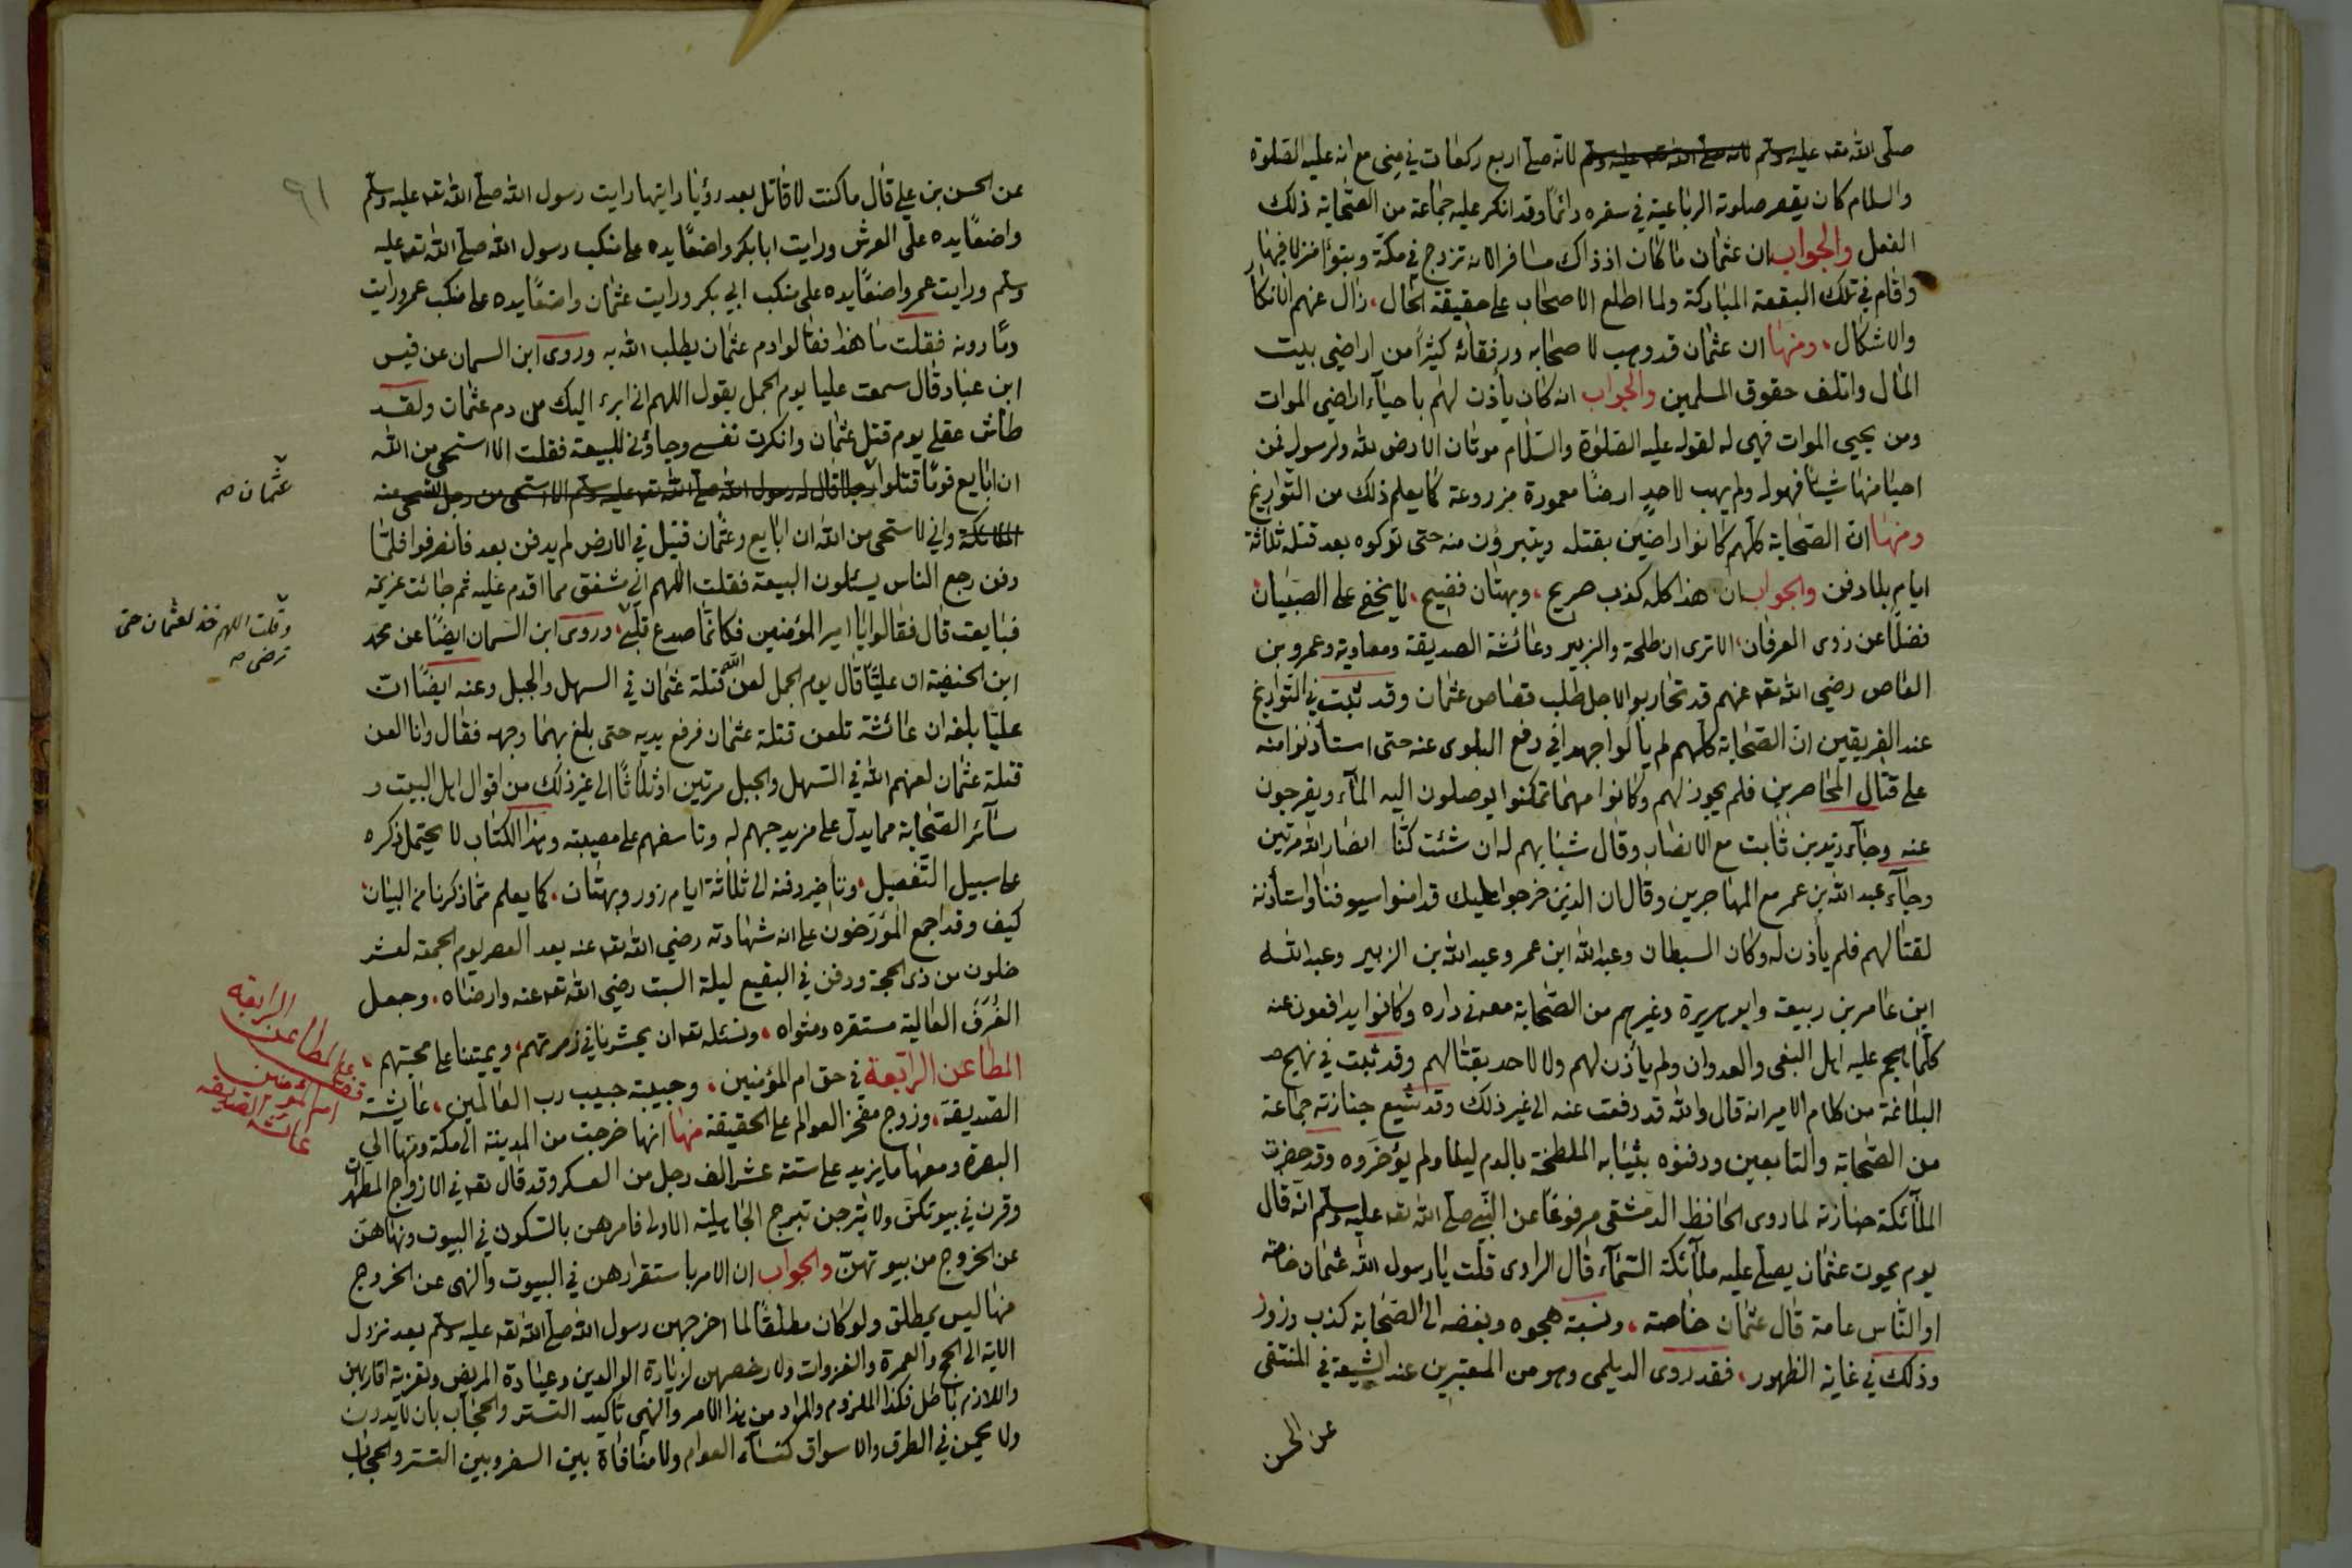 صلى الله تعا عليه وسلم لانه صلى الله تعا عليه وسلم لانه صلى اربع ركعات في منى مع انه عليه الصلوة
والسلام كان يقصر صلوته الرباعية في سفره دائما وقد انكر عليه جماعة من الصحابة ذلك
الفعل والجواب ان عثمان ما كان اذ ذاك مسافرا لانه تزوج في مكة وتبوأ منزلا فيها
واقام في تلك البقعة المباركة ولما اطلع الاصحاب على حقيقة الحال، زال عنهم الانكار
والاشكال، ومنها ان عثمان قد وهب لاصحابه ورفقائه كثيرًا من اراضي بيت
المال واتلف حقوق المسلمين والجواب انه كان يأذن لهم باحياء اراضي الموات
ومن يحيي الموات فهي له لقوله عليه الصلوة والسلام موتان الارض لله ولرسوله فمن
احيا منها شيئا فهو له ولم يهب لاحدٍ ارضًا معمورة مزروعة كما يعلم ذلك من التواريخ
ومنها ان الصحابة كلهم كانوا راضين بقتله ويتبرؤن منه حتى تركوه بعد قتله ثلاثة
ايام بلا دفن والجواب ان هذا كله كذب صريح، وبهتان فضيح، لا يخفى على الصبيان
فضلًا عن ذوى العرفان، الا ترى ان طلحة والزبير وعائشة الصديقة ومعاوية وعمرو بن
العاص رضي الله تعا عنهم قد تحاربوا لاجل طلب قصاص عثمان وقد ثبت في التواريخ
عند الفريقين ان الصحابة كلهم لم يألوا جهدا في دفع البلوى عنه حتى استأذنوا منه
على قتال المحاصرين فلم يجوز لهم وكانوا مهما تمكنوا يوصلون اليه الماء ويفرجون
عنه وجاء زيد بن ثابت مع الانصار وقال شبابهم له ان شئت كنا انصار الله مرتين
وجاء عبد الله بن عمر مع المهاجرين وقال ان الذين خرجوا عليك قد امنوا سيوفنا واستأذنه
لقتالهم فلم يأذن له وكان السبطان وعبد الله ابن عمر وعبد الله بن الزبير وعبد الله
ابن عامر بن ربيعة وابو هريرة وغيرهم من الصحابة معه في داره وكانوا يدافعون عنه
كلما هجم عليه اهل البغى والعدوان ولم يأذن لهم ولا لاحد بقتالهم وقد ثبت في نهج
البلاغة من كلام الامير انه قال والله قد دفعت عنه الى غير ذلك وقد شيع جنازته جماعة
من الصحابة والتابعين ودفنوه بثيابه الملطخة بالدم ليلا ولم يؤخروه وقد حضرت
الملائكة جنازته لما روى الحافظ الدمشقى مرفوعًا عن النبي صلى الله تعا عليه وسلم انه قال
يوم يموت عثمان يصلي عليه ملائكة السماء قال الراوى قلت يا رسول الله عثمان خاصة
او الناس عامة قال عثمان خاصة، ونسبة هجوه وبغضه الى الصحابة كذب وزور
وذلك في غاية الظهور، فقد روى الديلمى وهو من المعتبرين عند الشيعة في المنتقى
عن الحسن
٩١
عن الحسن بن علي قال ما كنت لاقاتل بعد رؤيا رايتها رايت رسول الله صلى الله تعا عليه وسلم
واضعًا يده على العرش ورايت ابا بكر واضعًا يده على منكب رسول الله صلى الله تعا عليه
وسلم ورايت عمر واضعًا يده على منكب ابي بكر ورايت عثمان واضعًا يده على منكب عمر ورايت
دمًا دونه فقلت ما هذا فقالوا دم عثمان يطلب الله به وروى ابن السمان عن قيس
ابن عباد قال سمعت عليا يوم الجمل يقول اللهم انى ابرء اليك من دم عثمان ولقد
طاش عقلي يوم قتل عثمان وانكرت نفسي وجاؤنى للبيعة فقلت الا استحى من الله
ان ابايع قومًا قتلوا رجلا قال له رسول الله صلى الله تعا عليه وسلم الا استحى من رجل تستحى منه
الملائكة وانى لا ستحى من الله ان ابايع وعثمان قتيل في الارض لم يدفن بعد فانصرفوا فلما
دفن رجع الناس يسئلون البيعة فقلت اللهم انى مشفق مما اقدم عليه ثم جائت عزيمة
فبايعت قال فقالوا يا امير المؤمنين فكانما صدع قلبي، وروى ابن السمان ايضًا عن محمد
ابن الحنفية ان عليًا قال يوم الجمل لعن الله قتلة عثمان في السهل والجبل وعنه ايضًا ان
عليًا بلغه ان عائشة تلعن قتلة عثمان فرفع يديه حتى بلغ بهما وجهه فقال وانا العن
قتلة عثمان لعنهم الله في السهل والجبل مرتين او ثلاثًا الى غير ذلك من اقوال اهل البيت و
سائر الصحابة مما يدل على مزيد حبهم له وتاسفهم على مصيبته وهذا الكتاب لا يحتمل ذكره
على سبيل التفصيل، وتاخير دفنه الى ثلاثة ايام زور وبهتان، كما يعلم مما ذكرنا من البيان
كيف وقد اجمع المؤرخون على ان شهادته رضي الله تعا عنه بعد العصر يوم الجمعة لعشر
خلون من ذى الحجة ودفن في البقيع ليلة السبت رضي الله تعا عنه وارضاه، وجعل
الغُرَفَ العالية مستقره ومثواه، ونسئله تعا ان يحشرنا في زمرتهم، ويميتنا على محبتهم،
المطاعن الرابعة في حق ام المؤمنين، وحبيبة حبيب رب العالمين، عايشة
الصديقة، وزوج مفخر العوالم على الحقيقة منها انها خرجت من المدينة الى مكة ومنها الي
البصرة ومعها ما يزيد على ستة عشر الف رجل من العسكر وقد قال تعا في الازواج المطهرات
وقرن في بيوتكن ولا تبرجن تبرج الجاهلية الاولى فامرهن بالسكون في البيوت ونهاهن
عن الخروج من بيوتهن والجواب ان الامر باستقرارهن في البيوت والنهى عن الخروج
منها ليس بمطلق ولو كان مطلقًا لما اخرجهن رسول الله صلى الله تعا عليه وسلم بعد نزول
الاية الى الحج والعمرة والغزوات ولا رخصهن لزيارة الوالدين وعيادة المريض وتعزية اقاربهن
واللازم باطل فكذا الملزوم والمراد من هذا الامر والنهى تاكيد التستر والحجاب بان لا يدرن
ولا يحمن في الطرق والاسواق كنساء العوام ولا منافاة بين السفر وبين التستر والحجاب
عثمان صح
وقلت اللهم خذ لعثمان حتى
ترضى صح
الرابعة
المطاعن
ام المؤمنين
عائشة الصديقة